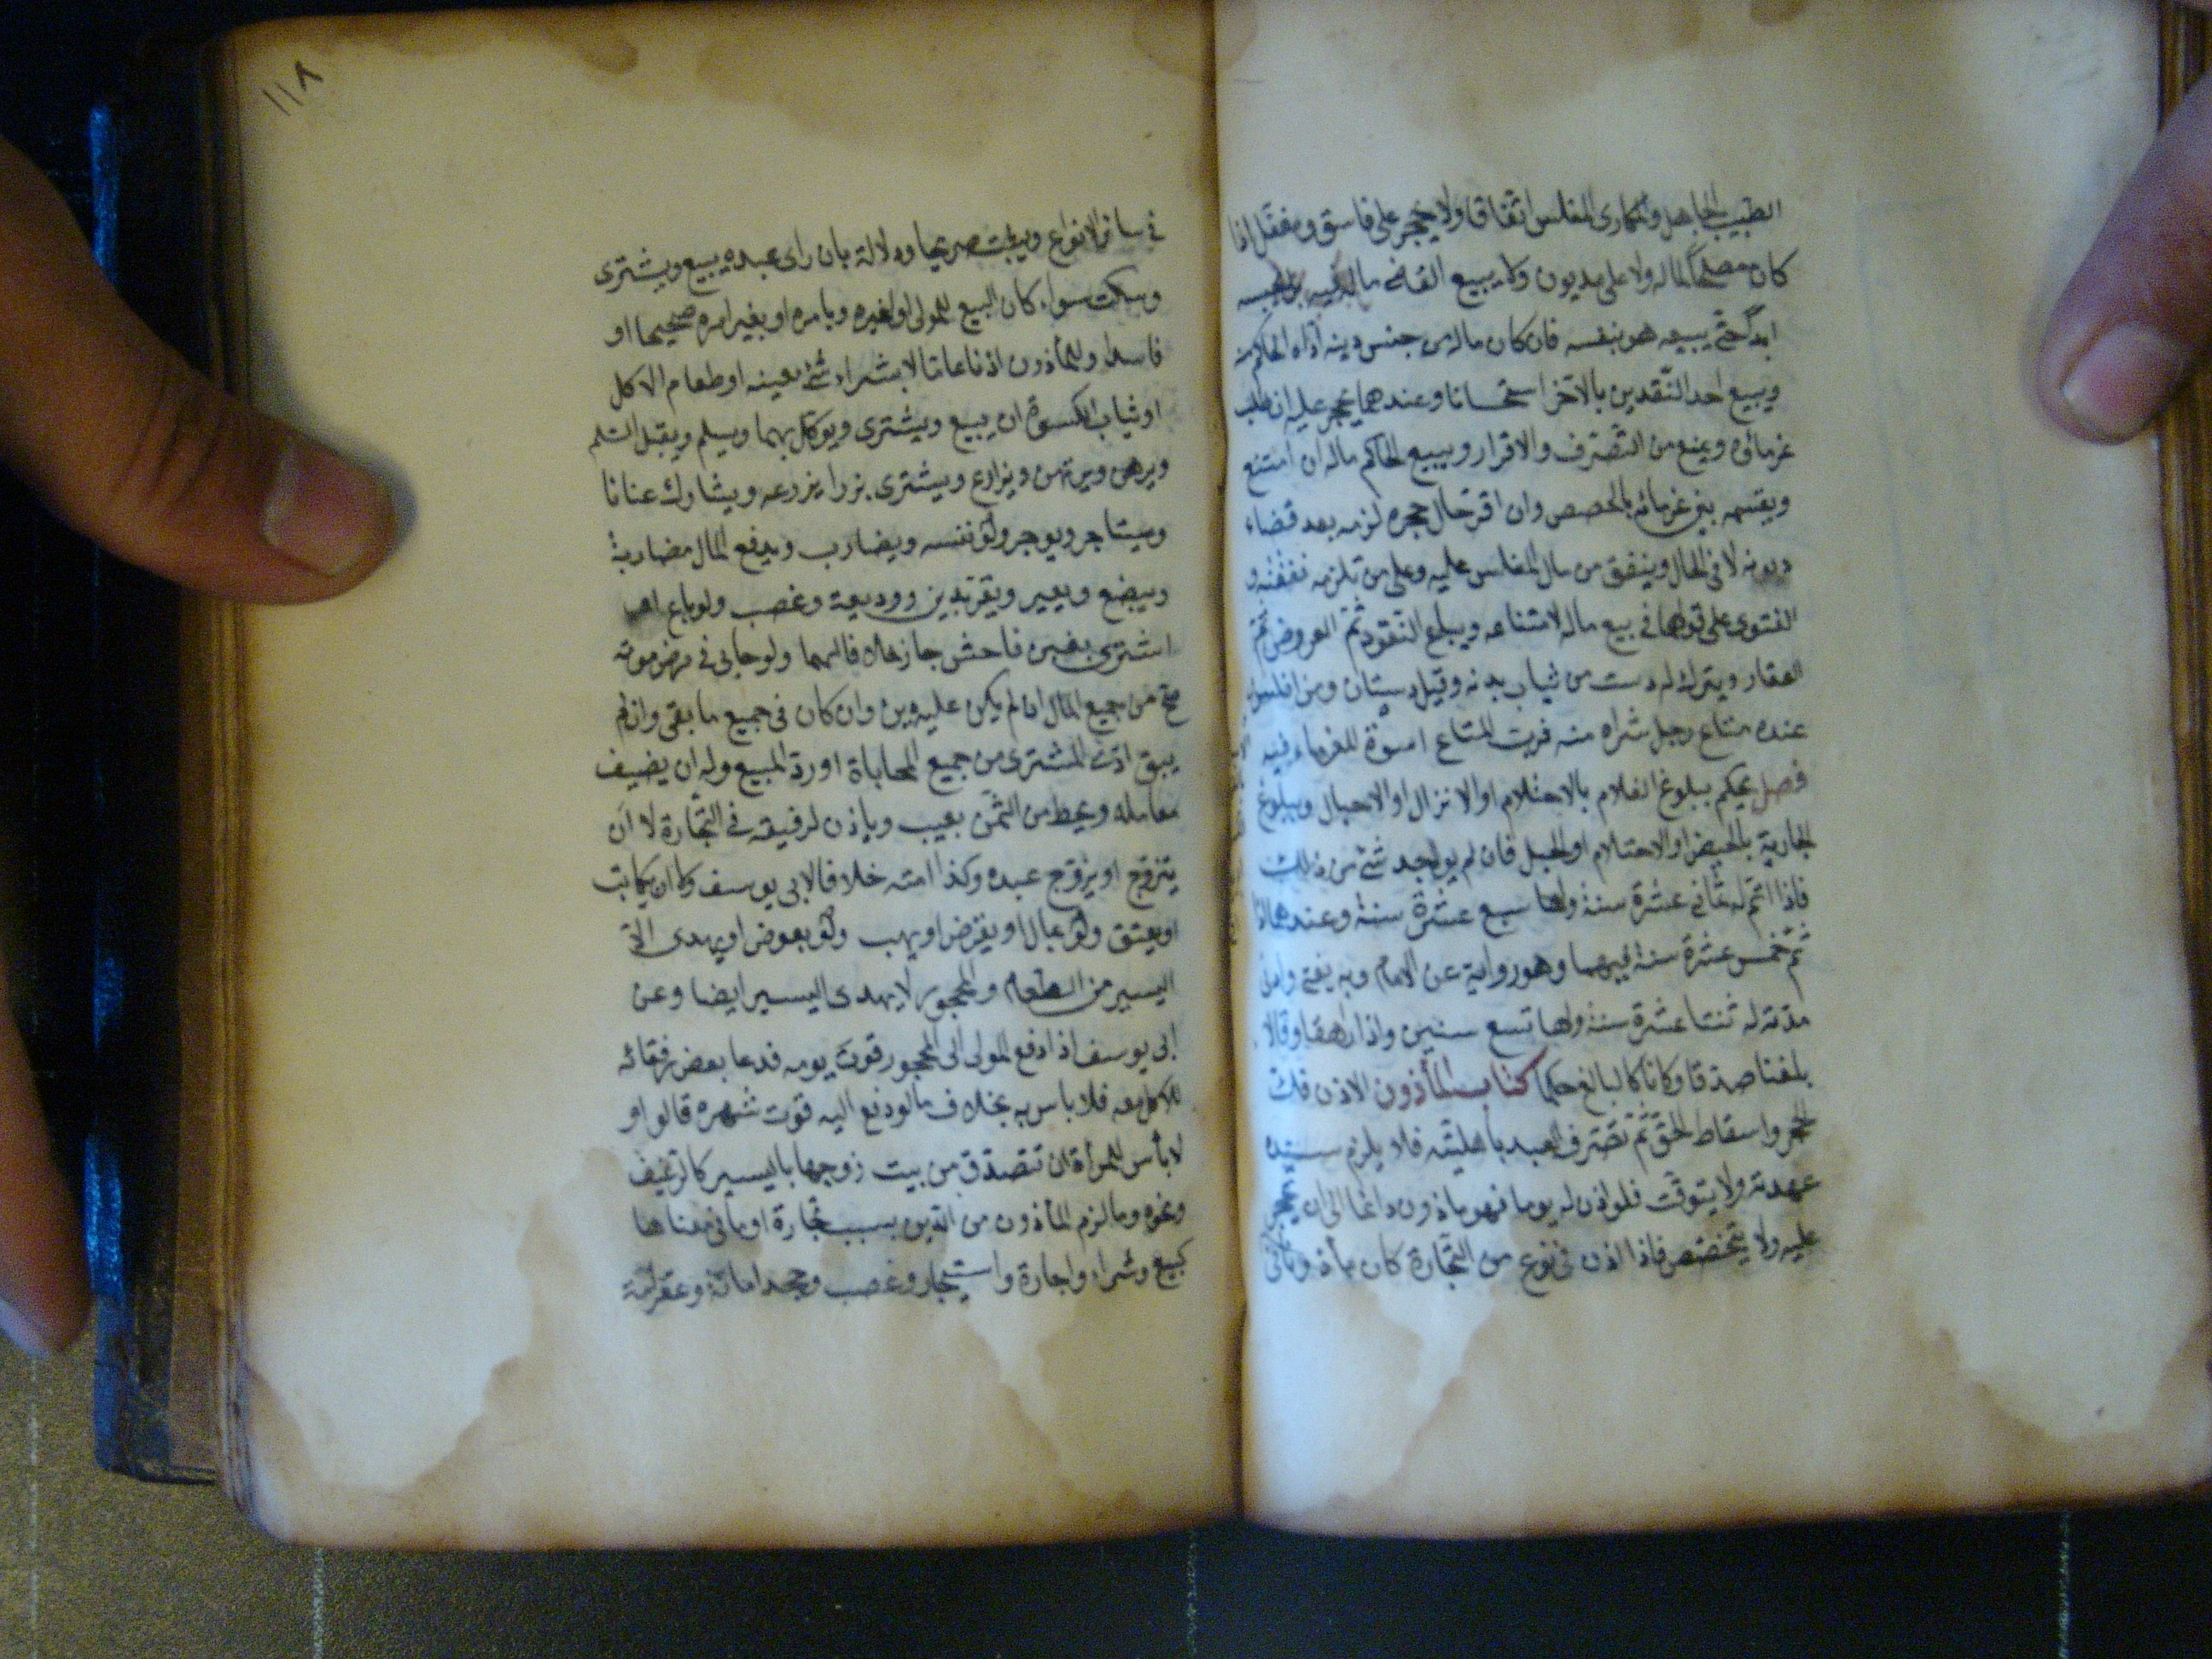 الطبيب الجاهل والمكارى المفلس اتفاقا ولا يحجر على فاسق ومغفل اذا
كان مصلحا لماله ولا على مديون ولا يبيع القاضى ماله فيه بل يحبسه
ابدا حتى يبيعه هو بنفسه فان كان ماله من جنس دينه اداه الحاكم منه
ويبيع احد النقدين بالآخر استحسانا وعندهما يحجر عليه ان طلب
غرمائه ويمنع من التصرف والاقرار ويبيع الحاكم ماله ان امتنع
ويقسمه بين غرمائه بالحصص وان اقر حال حجره لزمه بعد قضاء
ديونه لا فى الحال وينفق من مال المفلس عليه وعلى من تلزمه نفقته و
الفتوى على قولهما فى بيع ماله لامتناعه ويباع النقود ثم العروض ثم
العقار ويترك له دست من ثياب بدنه وقيل دستان ومن افلس و
عنده متاع رجل شراه منه فرب المتاع اسوة للغرماء فيه
فصل يحكم ببلوغ الغلام بالاحتلام او الانزال او الاحبال وببلوغ
الجارية بالحيض او الاحتلام او الحبل فان لم يوجد شئ من ذلك
فاذا اتم له ثمانى عشرة سنة ولها سبع عشرة سنة وعندهما اذا
تم خمس عشرة سنة فيهما وهو رواية عن الامام وبه يفتى وادنى
مدته له ثنتا عشرة سنة ولها تسع سنين واذا راهقا وقالا
بلغنا صدقا وكانا كالبالغ حكما كتاب المأذون الاذن فك
الحجر واسقاط الحق ثم تصرف العبد باهليته فلا يلزم سيده
عهدته ولا يتوقت فلو اذن له يوما فهو ماذون دائما الى ان يحجر
عليه ولا يتخصص فاذا اذن فى نوع من التجارة كان مأذونا
١١٨
فى سائر الانواع ويثبت صريحا ودلالة بان راى عبده يبيع ويشترى
وسكت سواء كان البيع للمولى او لغيره وبامره او بغير امره صحيحا او
فاسدا وللمأذون اذنا عاما لا بشراء شئ بعينه او طعام الاكل
او ثياب الكسوة ان يبيع ويشترى ويوكل بهما ويسلم ويقبل السلم
ويرهن ويرتهن ويزارع ويشترى بزرا يزرعه ويشارك عنانا
ويستاجر ويوجر ولو نفسه ويضارب ويدفع المال مضاربة
ويبضع ويعير ويقر بدين ووديعة وغصب ولو باع او
اشترى بغبن فاحش جاز خلافا لهما ولو حابى فى مرض موته
صح من جميع المال ان لم يكن عليه دين وان كان فى جميع ما بقى وان لم
يبق ادى المشترى من جميع المحاباة او رد المبيع وله ان يضيف
معامله ويحط من الثمن بعيب وياذن لرقيقه فى التجارة لا ان
يتزوج او يزوج عبده وكذا امته خلافا لابى يوسف ولا ان يكاتب
او يعتق ولو بمال او يقرض او يهب ولو بعوض او يهدى الا
اليسير من الطعام والمحجور لا يهدى اليسير ايضا وعن
ابى يوسف اذا دفع المولى الى المحجور قوت يومه فدعا بعض رفقائه
للاكل معه فلا باس به بخلاف ما لو دفع اليه قوت شهره قالوا و
لا بأس للمرأة ان تتصدق من بيت زوجها باليسير كالرغيف
ونحوه وما لزم المأذون من الدين بسبب تجارة او ما فى معناها
كبيع وشراء واجارة واستيجار وغصب وجحد امانة وعقر امة